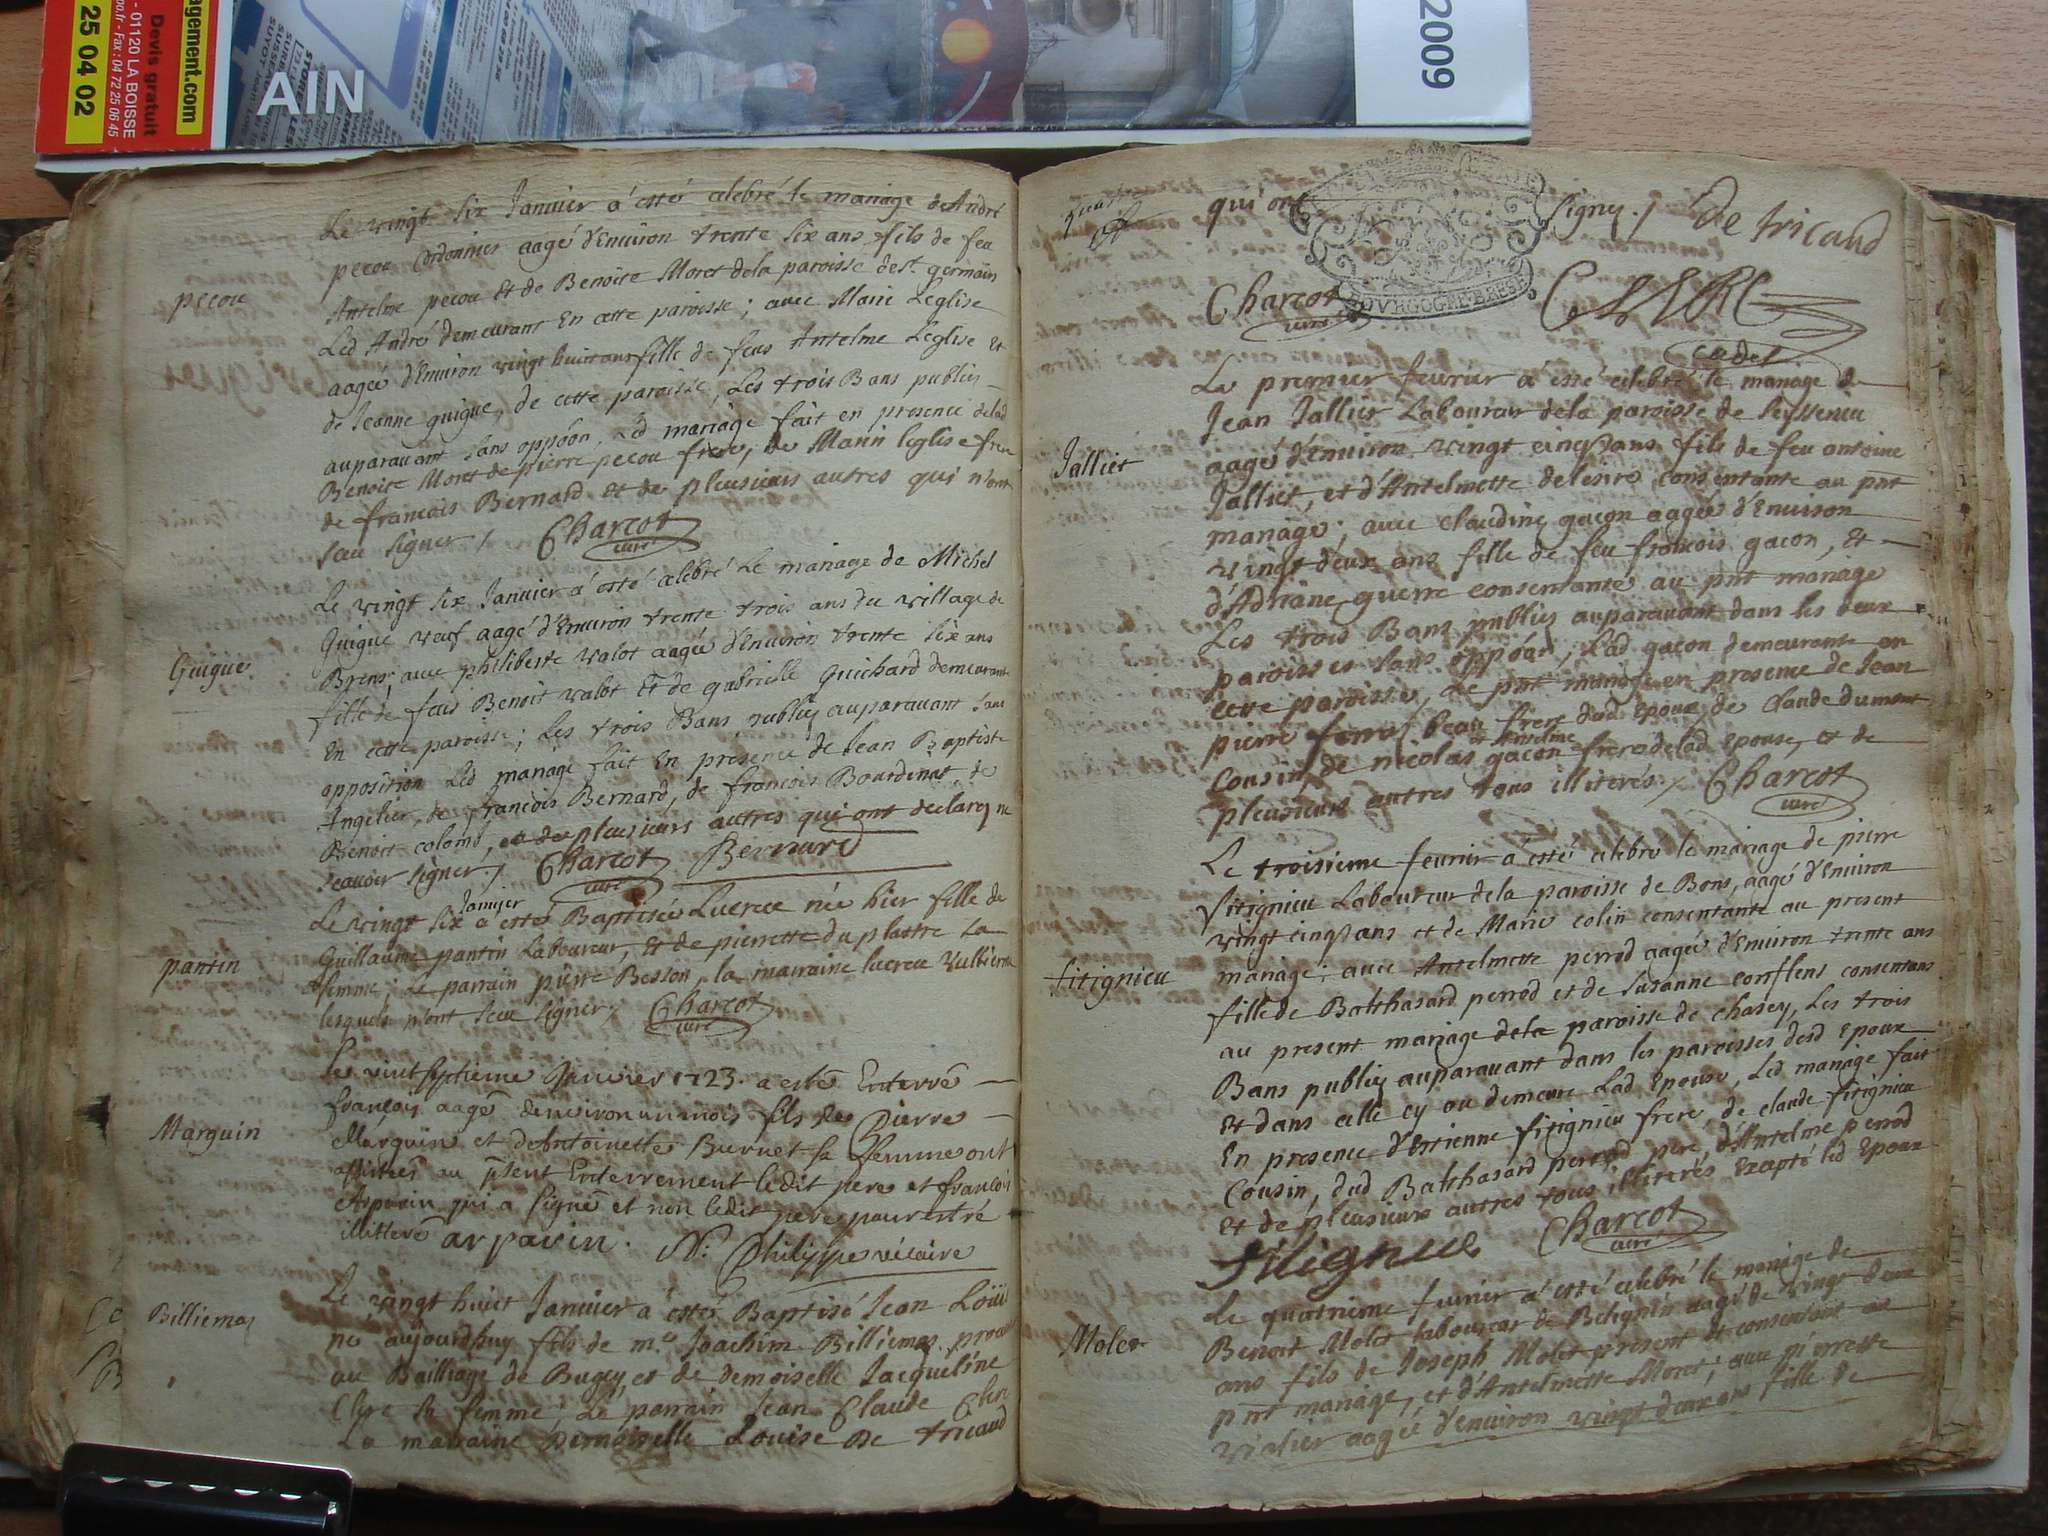 agement.com
25 04 02
Devis gratuit
- 01120 LA BOISSE
Fax : 04 72 25 06 45
AIN
2009
Le vingt six Janvier à esté celebré le mariage de André
pecou Cordonnier aagé d'Environ trente six ans fils de feu
Antelme pecou et de Benoite Moret dela paroisse de st. germain
Led André demeurant En cette paroisse; avec Marie Leglise
aageé d'Environ vingt huit ans fille de feus Antelme Leglise Et
de Jeanne guigue, de cette paroisse, Les trois Bans publiez
auparavant sans oppoôn. Led mariage fait en presence delad
Benoite Moret de pierre pecou frere, de Marin leglise frere
de francois Bernard et de pleusieurs autres qui n'ont
sceu signer /. Charcot
curé
pecou
Le vingt six Janvier à esté celebré Le mariage de Michel
Guigue veuf aagé d'Environ trente trois ans du village de
Brens; avec philiberte valot aageé d'Environ trente six ans
fille de feus Benoit valot Et de gabrielle Guichard demeurant
En cette paroisse; Les trois Bans publiez auparavant sans
opposition Led mariage fait En presence de Jean Baptiste
Angelier, de francois Bernard, de francois Bourdinat, de
Benoit colomb, et de pleusieurs autres qui ont declarez ne
scauoir signer /. Charcot Bernard
curé
Guigue
Janvier
Le vingt six à esté Baptiseé Lucrece neé hier fille de
Guillaume pantin Laboureur, Et de pierrette du plastre sa
femme; Le parrain pierre Besson, la marraine lucrece vullierme
lesquels n'ont sceu signer /. Charcot
curé
pantin
Le vint septieme Janvier 1723. a esté Enterré
françois aagé denviron un mois fils de Pierre
Marguin et de Antoinette Burnet sa femme ont
assistés au p̃sent Enterrement ledit pere et francois
Arpavin qui a signé et non ledit pere pour estre
illitteré arpavin. N: Philippe vicaire
Marguin
Le vingt huict Janvier à esté Baptisé Jean Loüis
né aujourdhuy fils de mre. Joachim Billiemas, procur
au Bailliage de Bugey, et de demoiselle Jacqueline
Clerc sa femme; Le parrain Jean Claude Clerc
La marraine Demoiselle Louise De tricaud
Billiemas
qui ont signez./ De tricaud
Charcot
curé
CLERC
cadet
BOVRGOGNE BRESSE
Le premier fevrier à esté celebré le mariage de
Jean Jallier Laboureur dela paroisse de Seyssieu
aagé d'Environ vingt cinq ans fils de feu antoine
Jallier, et d'Antelmette delesire, consentante au pnt
mariage; avec claudine gacon aageé d'Environ
vingt deux ans fille de feu francois gacon, Et
d'Adriane guerre consentante au pnt mariage
Les trois Bans publiez auparavant dans les deux
paroisses sans oppoôn, Lad gacon demeurante en
cette paroisse, Le pnt mariage en presence de Jean
pierre ferraz beau frere dud Epoux, de Claude dumont
et Antelme
Cousin, de nicolas gacon freres delad Epouse, et de
pleusieurs autres tous illiterés /. Charcot
curé
Jallier
Le troisieme fevrier à esté celebré le mariage de pierre
fitignieu Laboureur dela paroisse de Bons, aagé d'Environ
vingt cinq ans et de Marie colin consentante au present
mariage; avec Antelmette perrod aageé d'Environ trente ans
fille de Balthasard perrod et de Susanne conflens consentans
au present mariage dela paroisse de chasey, Les trois
Bans publiez auparavant dans les paroisses desd Epoux
Et dans celle cy ou demeure Lad Epouse, Led mariage fait
En presence d'Estienne fitignieu frere, de claude fitignieu
Cousin, dud Balthasard perrod pere, d'Antelme perrod
Et de pleusieurs autres tous illiterés Excepté led Epoux
fitignieu Charcot
curé
fitignieu
Le quatrieme fevrier à esté celebré le mariage de
Benoit Molet laboureur de Betignin aagé de vingt deux
ans fils de Joseph Molet present et consentant au
pnt mariage, et d'Antelmette Moret; avec pierrette
vialier aageé d'Environ vingt deux ans fille de
Molet